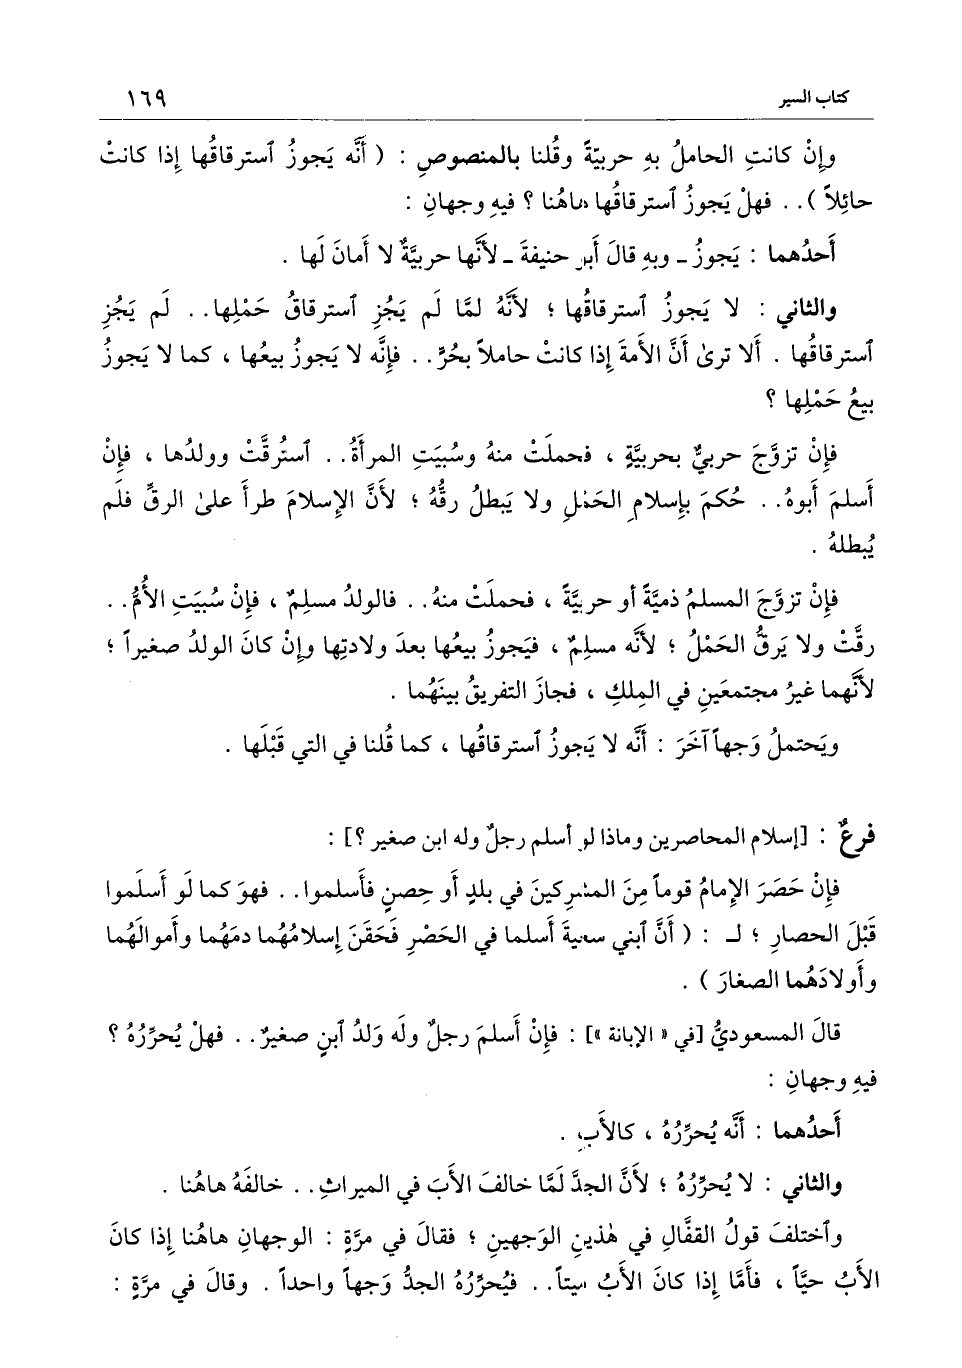 كتاب السير ١٦٩
وإِنْ كانتِ الحاملُ بهِ حربيّةً وقُلنا بالمنصوصِ : ( أَنَّه يَجوزُ ٱسترقاقُها إِذا كانتْ
حائِلاً ) . . فهلْ يَجوزُ ٱسترقاقُها هاهُنا ؟ فيهِ وجهانِ :
أَحدُهما : يَجوزُ ـ وبهِ قالَ أَبو حنيفةَ ـ لأَنَّها حربيَّةٌ لا أَمانَ لَها .
والثاني : لا يَجوزُ ٱسترقاقُها ؛ لأَنَّهُ لمَّا لَم يَجُزِ ٱسترقاقُ حَمْلِها . . لَم يَجُزِ
ٱسترقاقُها . أَلا ترىٰ أَنَّ الأَمةَ إِذا كانتْ حاملاً بحُرٍّ . . فإِنَّه لا يَجوزُ بيعُها ، كما لا يَجوزُ
بيعُ حَمْلِها ؟
فإِنْ تزوَّجَ حربيٌّ بحربيَّةٍ ، فحملَتْ منهُ وسُبيَتِ المرأَةُ . . ٱستُرقَّتْ وولدُها ، فإِنْ
أَسلمَ أَبوهُ . . حُكمَ بإِسلامِ الحَمْلِ ولا يَبطلُ رقُّهُ ؛ لأَنَّ الإِسلامَ طرأَ علىٰ الرقِّ فلَم
يُبطلهُ .
فإِنْ تزوَّجَ المسلمُ ذميَّةً أو حربيَّةً ، فحملَتْ منهُ . . فالولدُ مسلِمٌ ، فإِنْ سُبيَتِ الأُمُّ . .
رقَّتْ ولا يَرقُّ الحَمْلُ ؛ لأَنَّه مسلِمٌ ، فيَجوزُ بيعُها بعدَ ولادتِها وإِنْ كانَ الولدُ صغيراً ؛
لأَنَّهما غيرُ مجتمعَينِ في المِلكِ ، فجازَ التفريقُ بينَهُما .
ويَحتملُ وَجهاً آخَرَ : أَنَّه لا يَجوزُ ٱسترقاقُها ، كما قُلنا في التي قَبْلَها .
فرعٌ : [إسلام المحاصرين وماذا لو أسلم رجلٌ وله ابن صغير ؟] :
فإِنْ حَصَرَ الإِمامُ قوماً مِنَ المشركينَ في بلدٍ أَو حِصنٍ فأَسلموا . . فهوَ كما لَو أَسلَموا
قَبْلَ الحصارِ ؛ لـ : ( أَنَّ ٱبني سعيةَ أَسلما في الحَصْرِ فَحَقَنَ إِسلامُهُما دمَهُما وأَموالَهُما
وأَولادَهُما الصغارَ ) .
قالَ المسعوديُّ [في « الإبانة »] : فإِنْ أَسلمَ رجلٌ ولَه وَلدُ ٱبنٍ صغيرٌ . . فهلْ يُحرِّرُهُ ؟
فيهِ وجهانِ :
أَحدُهما : أَنَّه يُحرِّرُهُ ، كالأَبِ .
والثاني : لا يُحرِّرُهُ ؛ لأَنَّ الجدَّ لَمَّا خالفَ الأَبَ في الميراثِ . . خالفَهُ هاهُنا .
وٱختلفَ قولُ القفَّالِ في هٰذينِ الوَجهينِ ؛ فقالَ في مرَّةٍ : الوجهانِ هاهُنا إِذا كانَ
الأَبُ حيَّاً ، فأَمَّا إِذا كانَ الأَبُ ميتاً . . فيُحرِّرُهُ الجدُّ وَجهاً واحداً . وقالَ في مرَّةٍ :